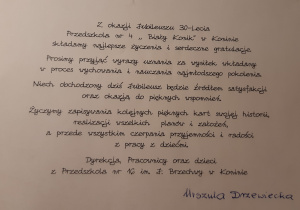 Z okazji Jubileuszu 30-lecia
Przedszkola nr 4 „Biały Konik" w Koninie
składamy najlepsze życzenia i serdeczne gratulacje.
Prosimy przyjąć wyrazy uznania za wysiłek wkładany
w proces wychowania i nauczania najmłodszego pokolenia.
Niech obchodzony dziś Jubileusz będzie źródłem satysfakcji
oraz okazją do pięknych wspomnień.
Życzymy zapisywania kolejnych pięknych kart swojej historii,
realizacji wszelkich planów i założeń,
a przede wszystkim czerpania przyjemności i radości
z pracy z dziećmi.
Dyrekcja, Pracownicy oraz dzieci
z Przedszkola nr 16 im. J. Brzechwy w Koninie
Urszula Drzewiecka